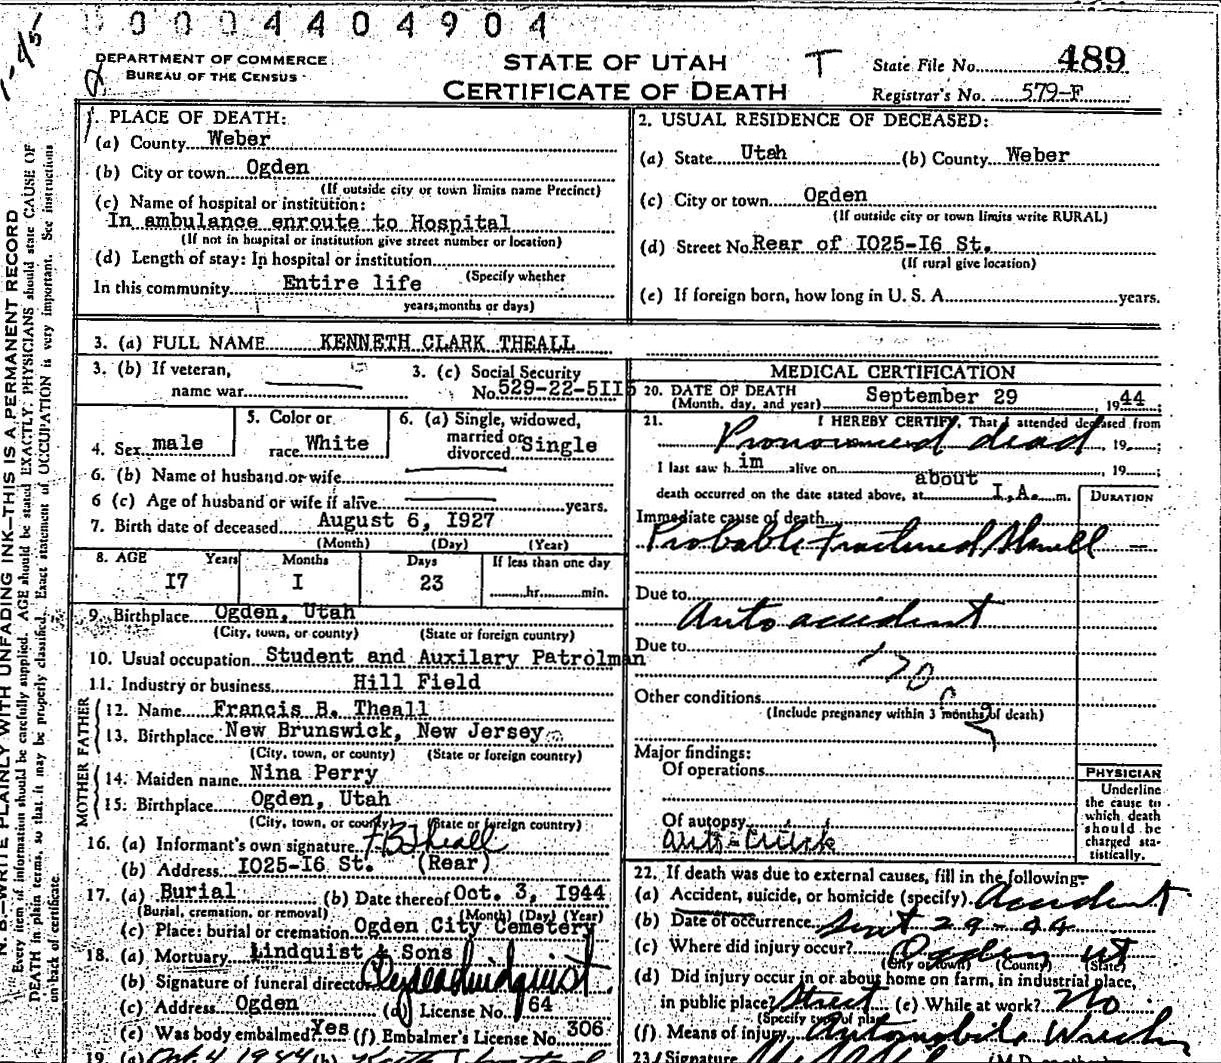 0004404904
DEPARTMENT OF COMMERCE
BUREAU OF THE CENSUS
STATE OF UTAH
CERTIFICATE OF DEATH
T
State File No. 489
Registrar's No. 579-F
1. PLACE OF DEATH:
(a) County Weber
(b) City or town Ogden
(If outside city or town limits name Precinct)
(c) Name of hospital or institution:
In ambulance enroute to Hospital
(If not in hospital or institution give street number or location)
(d) Length of stay: In hospital or institution
(Specify whether
In this community Entire life
years, months or days)
2. USUAL RESIDENCE OF DECEASED:
(a) State Utah (b) County Weber
(c) City or town Ogden
(If outside city or town limits write RURAL)
(d) Street No. Rear of I025-I6 St.
(If rural give location)
(e) If foreign born, how long in U. S. A. years.
3. (a) FULL NAME KENNETH CLARK THEALL
3. (b) If veteran,
name war
3. (c) Social Security
No. 529-22-5II5
4. Sex male
5. Color or
race White
6. (a) Single, widowed,
married or
divorced Single
6. (b) Name of husband or wife
6 (c) Age of husband or wife if alive years.
7. Birth date of deceased August 6, I927
(Month) (Day) (Year)
8. AGE Years Months Days If less than one day
I7 I 23 hr. min.
9. Birthplace Ogden, Utah
(City, town, or county) (State or foreign country)
10. Usual occupation Student and Auxilary Patrolman
11. Industry or business Hill Field
FATHER
12. Name Francis B. Theall
13. Birthplace New Brunswick, New Jersey
(City, town, or county) (State or foreign country)
MOTHER
14. Maiden name Nina Perry
15. Birthplace Ogden, Utah
(City, town, or county) (State or foreign country)
16. (a) Informant's own signature F B Theall
(b) Address I025-I6 St. (Rear)
17. (a) Burial (b) Date thereof Oct. 3, I944
(Burial, cremation, or removal) (Month) (Day) (Year)
(c) Place: burial or cremation Ogden City Cemetery
18. (a) Mortuary Lindquist & Sons
(b) Signature of funeral director
(c) Address Ogden (d) License No. 64
(e) Was body embalmed? Yes (f) Embalmer's License No. 306
19. (a) Oct. 4 1944 (b)
MEDICAL CERTIFICATION
20. DATE OF DEATH
(Month, day, and year) September 29 1944
21. I HEREBY CERTIFY, That I attended deceased from
Pronounced dead 19
I last saw h im alive on , 19
about
death occurred on the date stated above, at I,A. m.
DURATION
Immediate cause of death
Probable Fractured Skull —
Due to
Auto accident
Due to
170
Other conditions
(Include pregnancy within 3 months of death)
Major findings:
Of operations
Of autopsy
PHYSICIAN
Underline
the cause to
which death
should be
charged sta-
tistically.
22. If death was due to external causes, fill in the following:
(a) Accident, suicide, or homicide (specify) Accident
(b) Date of occurrence Sept 29-44
(c) Where did injury occur? Ogden Ut
(City or town) (County) (State)
(d) Did injury occur in or about home on farm, in industrial place,
in public place? Street (e) While at work? No
(Specify type of place)
(f) Means of injury Automobile Wreck
23. Signature (M.D.
N. B.—WRITE PLAINLY WITH UNFADING INK—THIS IS A PERMANENT RECORD
Every item of information should be carefully supplied. AGE should be stated EXACTLY. PHYSICIANS should state CAUSE OF
DEATH in plain terms, so that it may be properly classified. Exact statement of OCCUPATION is very important. See instructions
on back of certificate.